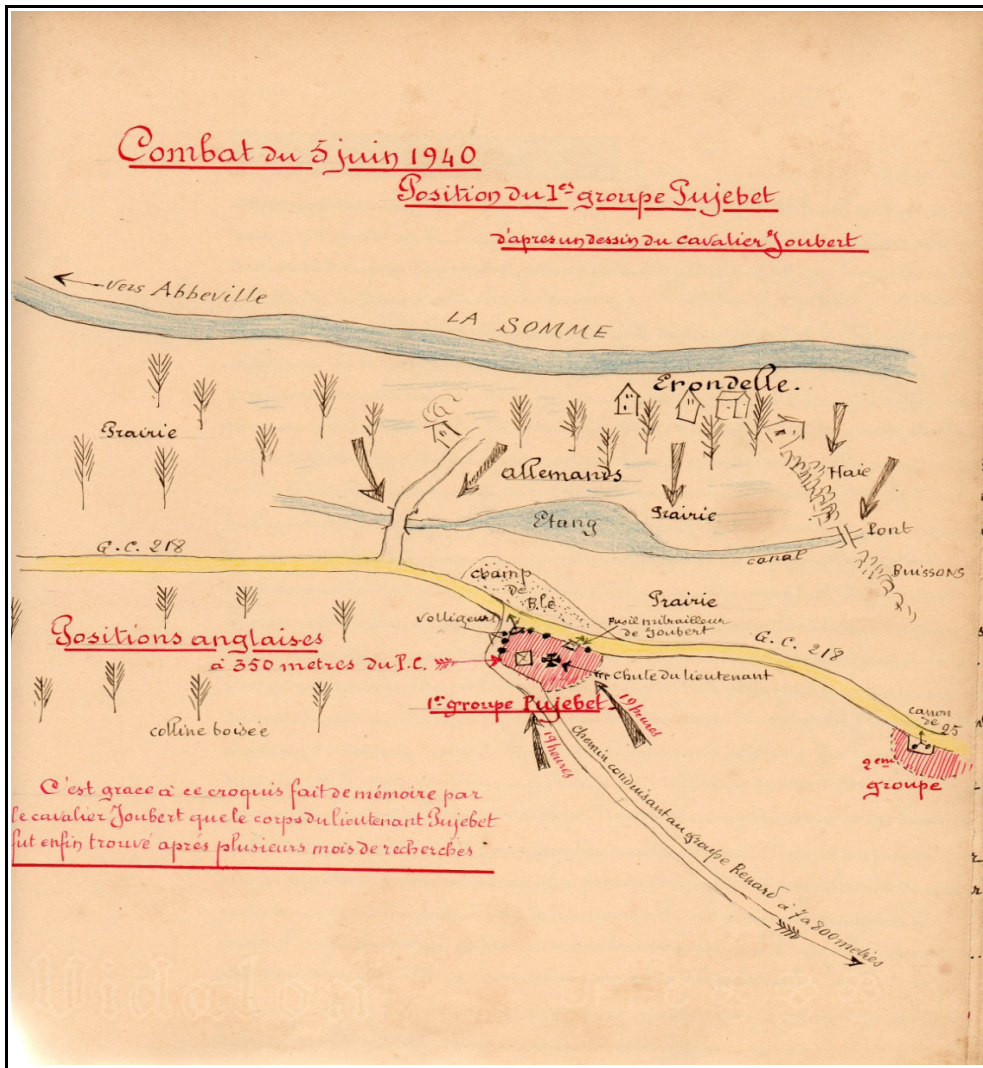 Combat du 5 juin 1940
Position du 1er groupe Pujebet
d'apres un dessin du cavalier Joubert
vers Abbeville
LA SOMME
Erondelle.
Prairie
allemands
Haie
Etang
Prairie
Pont
canal
G.C. 218
Buissons
champ
de
Blé
Prairie
Voltigeurs
Fusil mitrailleur
de Joubert
G.C. 218
Positions anglaises
à 350 metres du P.C.
Chute du lieutenant
1er groupe Pujebet
19 heures
19 heures
canon
de 25
2eme
groupe
colline boisée
chemin conduisant au groupe Renard à 7 a 800 metres
C'est grace à ce croquis fait de mémoire par
le cavalier Joubert que le corps du lieutenant Pujebet
fut enfin trouvé aprés plusieurs mois de recherches
Vidalon